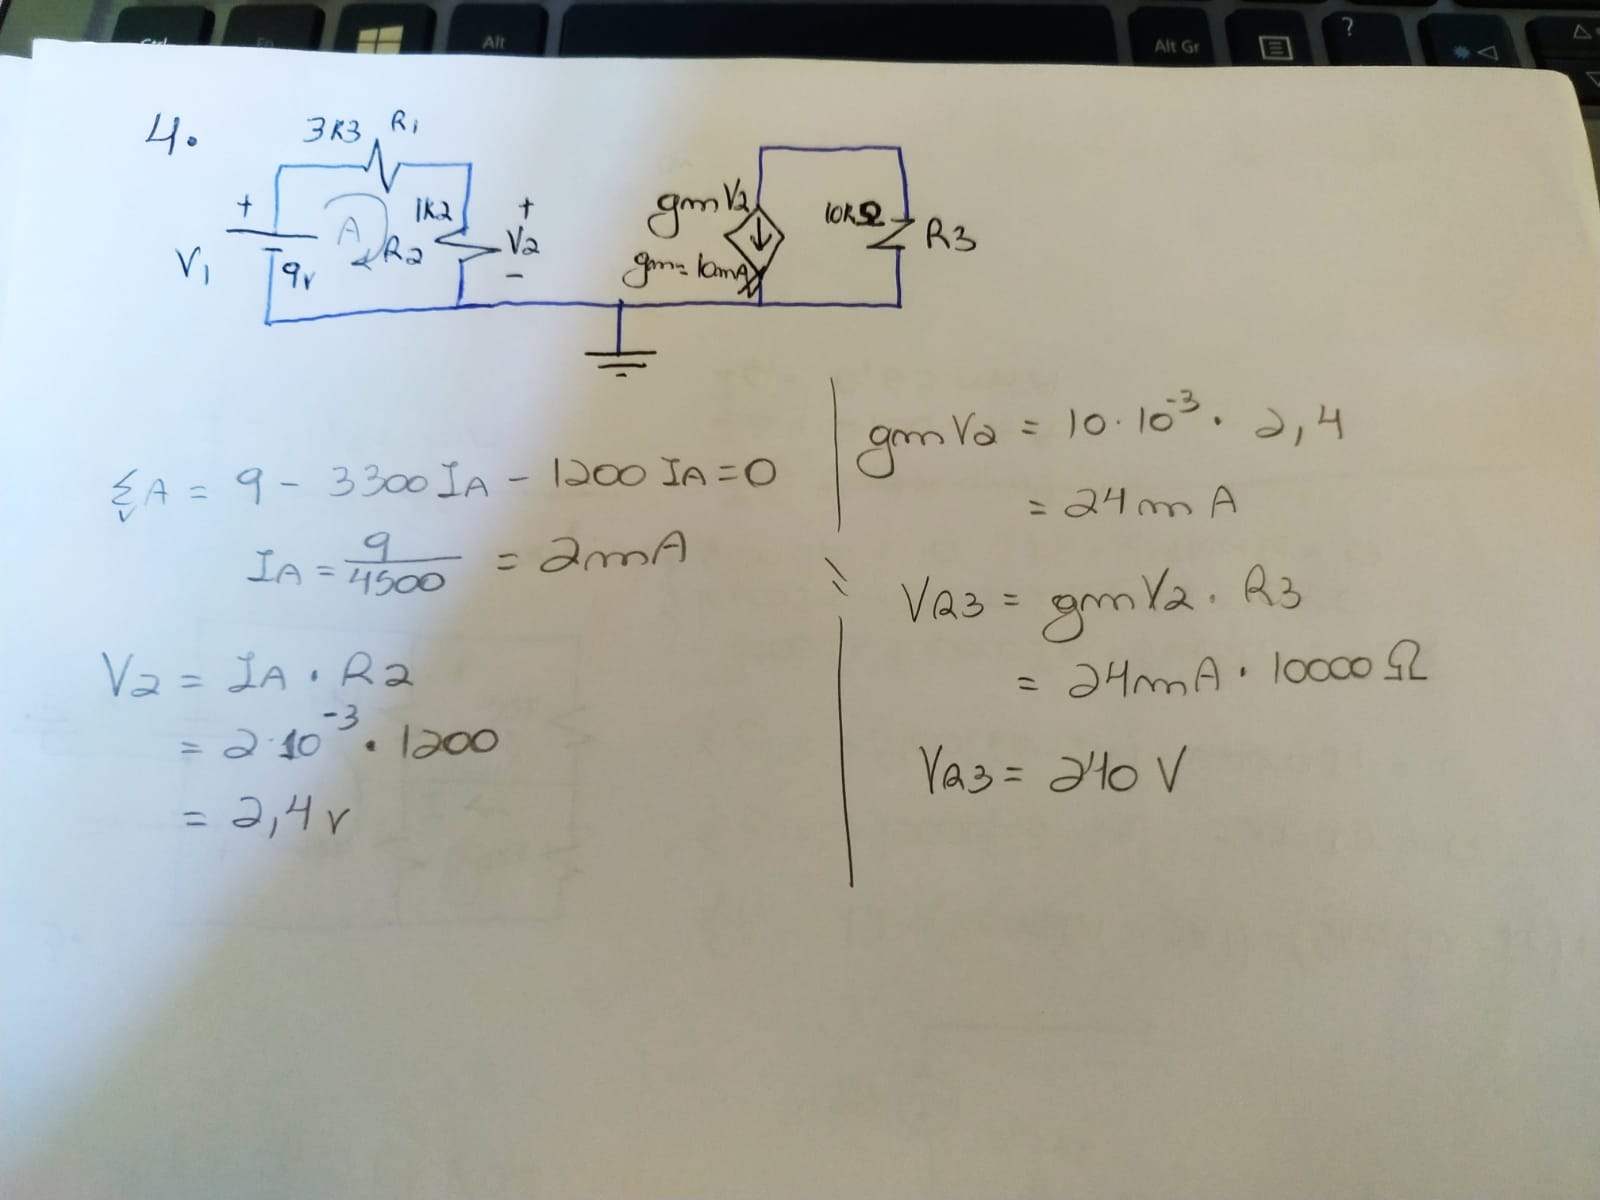 Alt
Alt Gr
?
4.
3K3 R1
+
A
1K2
R2
+
V2
-
V1
9v
gmV2
gm= 10mA
10KΩ
R3
ΣA = 9 - 3300 IA - 1200 IA = 0
v
IA = 9/4500 = 2mA
V2 = IA . R2
= 2.10^-3 . 1200
= 2,4v
gmV2 = 10.10^-3 . 2,4
= 24mA
VR3 = gmV2 . R3
= 24mA . 10000 Ω
VR3 = 240 V